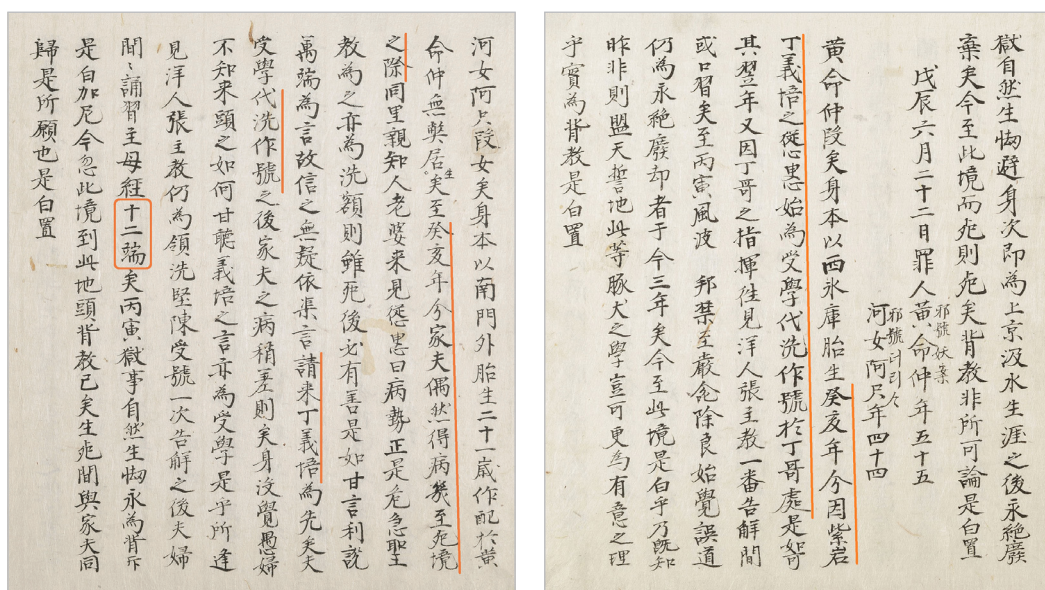 獄自然生㥘避身次即為上京汲水生涯之後永絕廢
棄矣今至此境而死則死矣背教非所可論是白置
戊辰六月二十二日罪人黃命仲年五十五
邪號
河女阿只年四十四
邪號
黃命仲段矣身本以西氷庫胎生癸亥年分因紫岩
丁義悟之慫慂始為受學代洗作號於丁哥處是如可
其翌年又因丁哥之指揮徃見洋人張主教一番告解間
或口習矣至丙寅風波 邦禁至嚴兺除良始覺誤道
仍為永絕廢却者于今三年矣今至此境是白乎乃旣知
昨非則盟天誓地此等豚犬之學豈可更為有意之理
乎實為背教是白置
河女阿只段女矣身本以南門外胎生二十一歲作配於黃
命仲無獘居生矣至癸亥年分家夫偶然得病幾至死境
之際同里親知人老婆来見慫慂曰病勢正是危急聖
教為之亦為洗額則雖死後必有善是如甘言利說
萬端為言故信之無疑依渠言請来丁義悟為先矣夫
受學代洗作號之後家夫之病稍差則矣身沒覺愚婦
不知来頭之如何甘聽義悟之言亦為受學是乎所逢
見洋人張主教仍為領洗堅陳受號一次告解之後夫婦
間〻誦習主母経十二端矣丙寅獄事自然生㥘永為背斥
是白加尼今忽此境到此地頭背教已矣生死間與家夫同
歸是所願也是白置